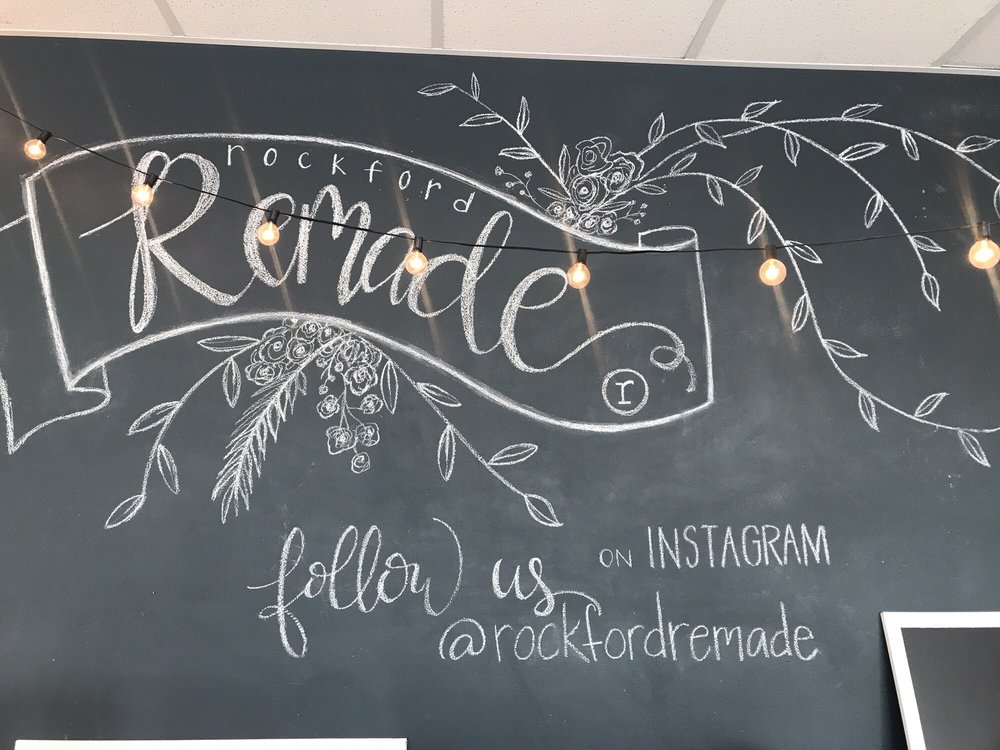 rockford
Remade
r
follow us ON INSTAGRAM
@rockfordremade